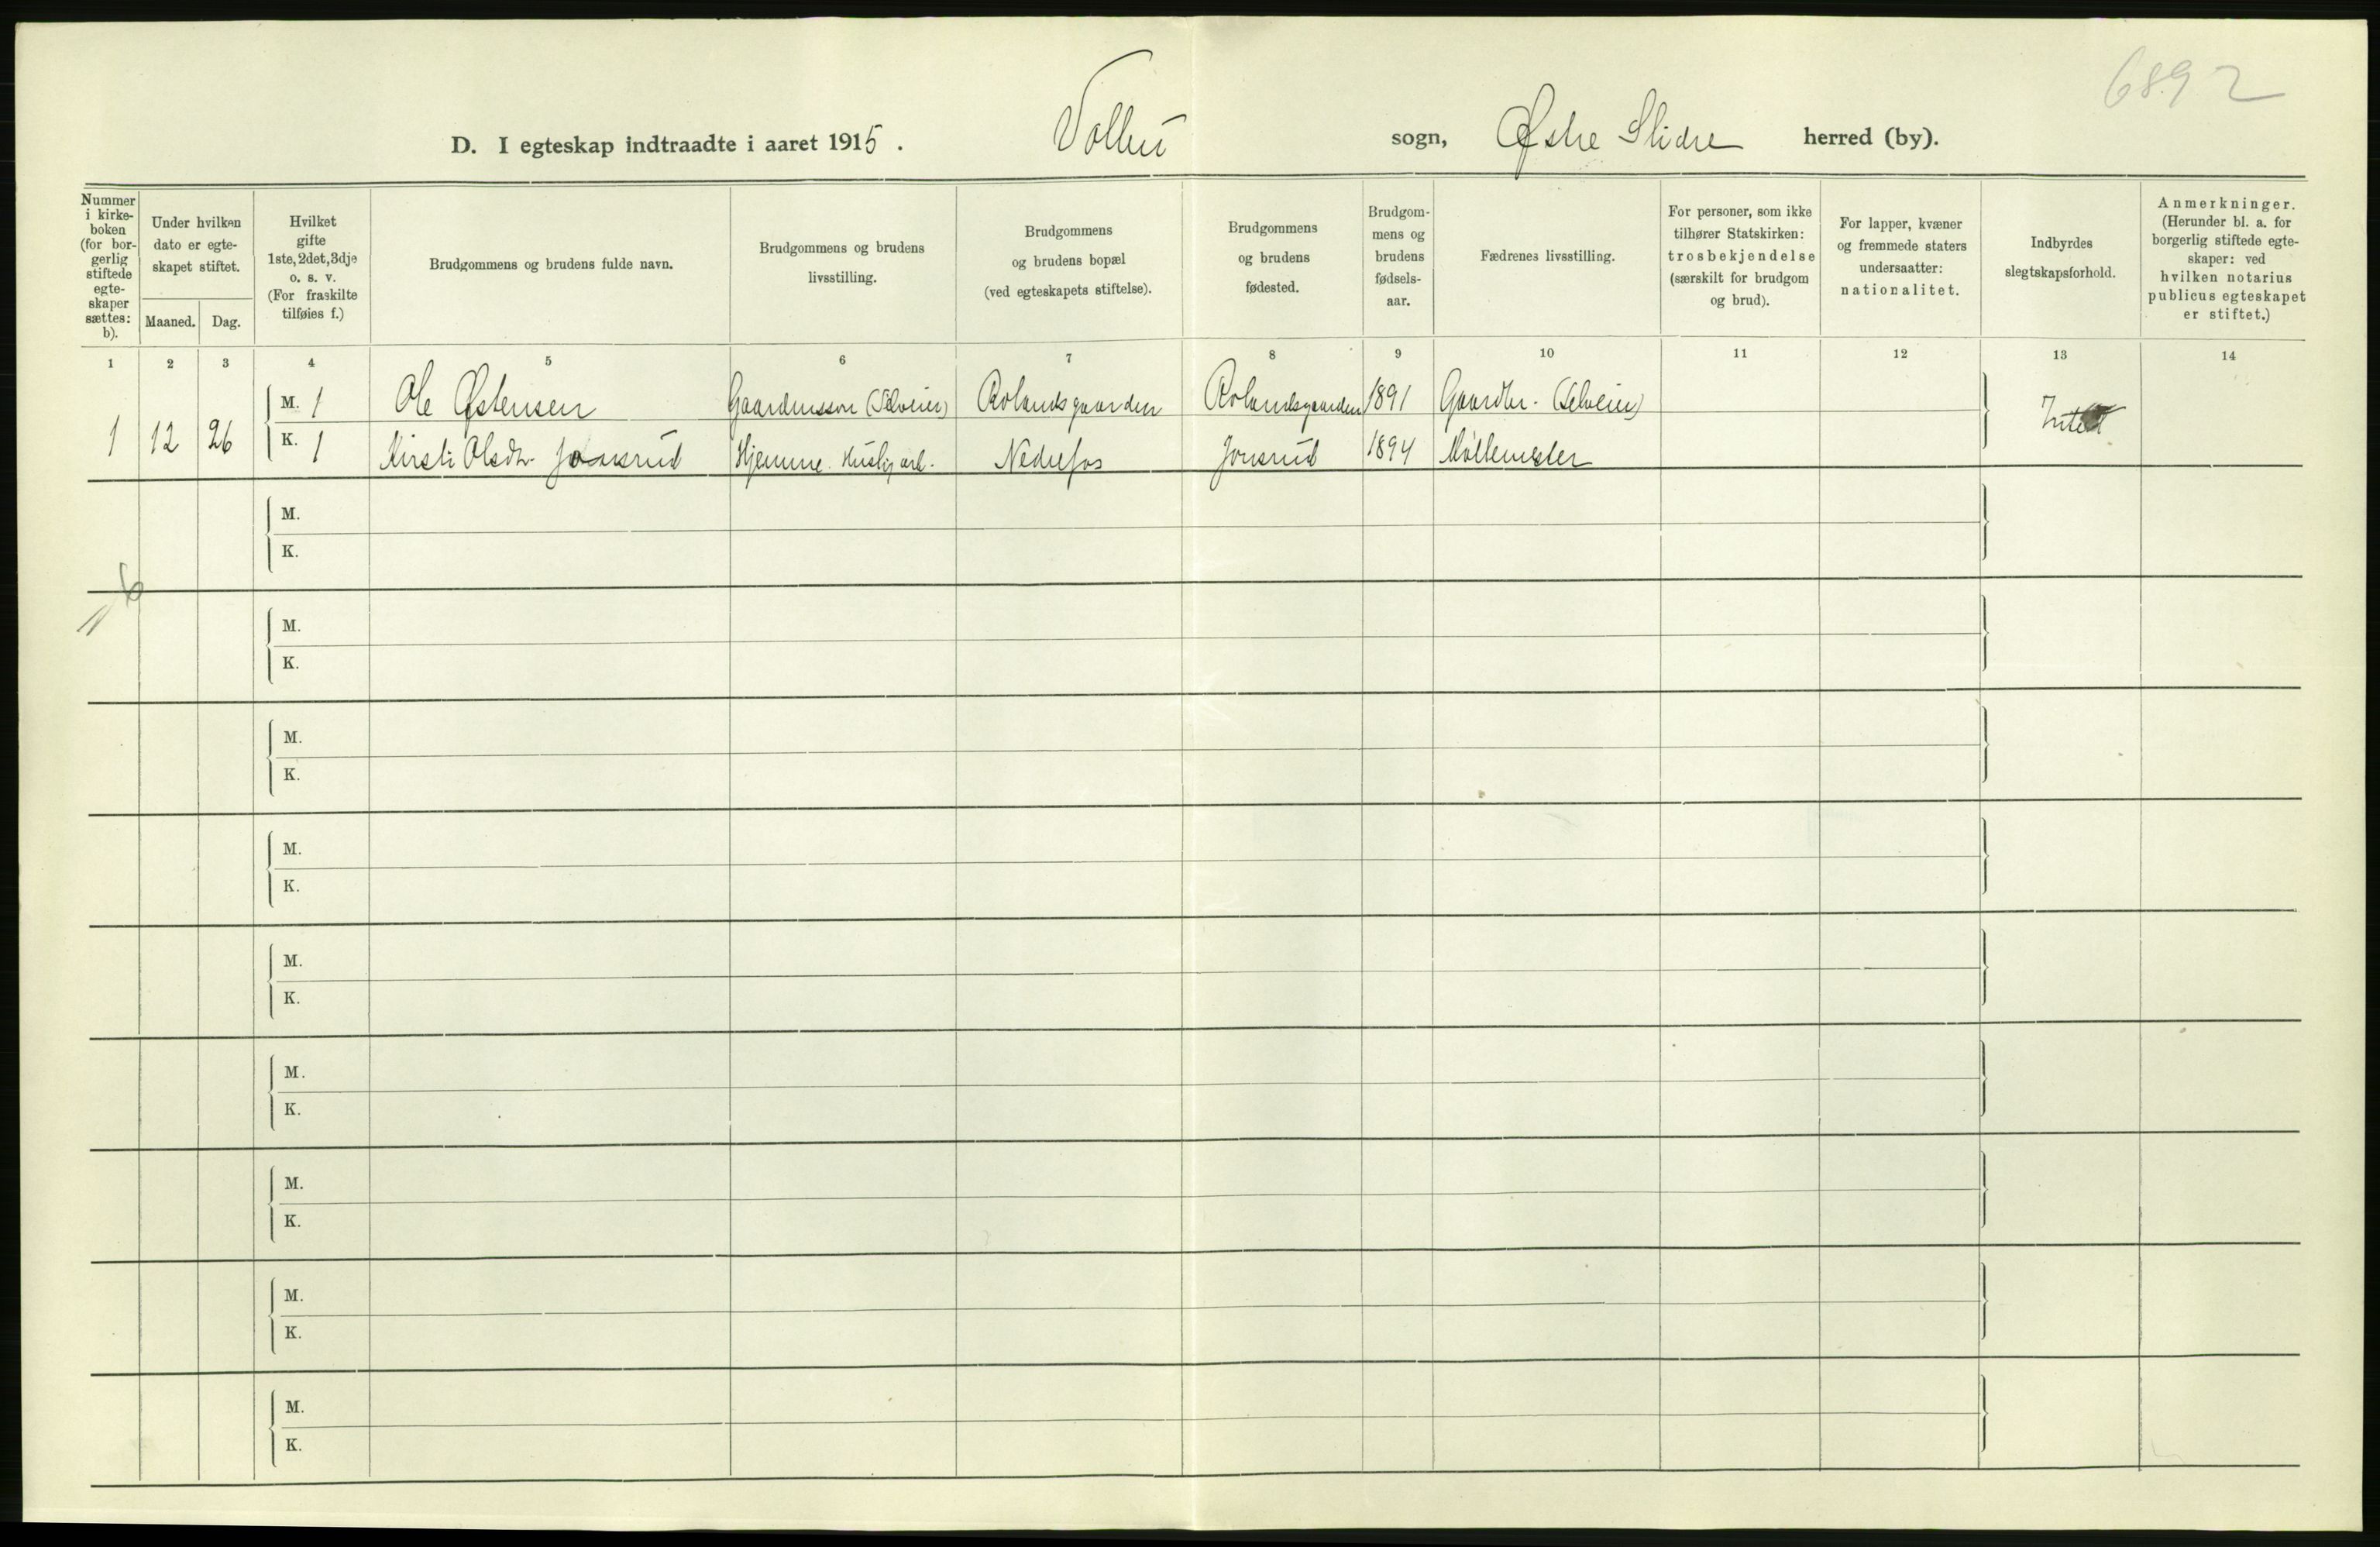 6892
D. I egteskap indtraadte i aaret 1915. Volbu sogn, Østre Slidre herred (by).
Nummer i kirke- boken (for bor- gerlig stiftede egte- skaper sættes: b).
Under hvilken dato er egte- skapet stiftet.
Maaned. Dag.
Hvilket gifte 1ste, 2det, 3dje o. s. v. (For fraskilte tilføies f.)
Brudgommens og brudens fulde navn.
Brudgommens og brudens livsstilling.
Brudgommens og brudens bopæl (ved egteskapets stiftelse).
Brudgommens og brudens fødested.
Brudgom- mens og brudens fødsels- aar.
Fædrenes livsstilling.
For personer, som ikke tilhører Statskirken: trosbekjendelse (særskilt for brudgom og brud).
For lapper, kvæner og fremmede staters undersaatter: nationalitet.
Indbyrdes slegtskapsforhold.
Anmerkninger. (Herunder bl. a. for borgerlig stiftede egte- skaper: ved hvilken notarius publicus egteskapet er stiftet.)
1 2 3 4 5 6 7 8 9 10 11 12 13 14
M. 1 Ole Østensen Gaardmssøn (Selveier) Rolandsgaarden Rolandsgaarden 1891 Gaardbr. (Selveier)
1 12 26 K. 1 Kirsti Olsdtr. Jonsrud Hjemme. Huslig arb. Nedrefos Jonsrud 1894 Møllemester Intet
M.
K.
M.
K.
M.
K.
M.
K.
M.
K.
M.
K.
M.
K.
M.
K.
M.
K.